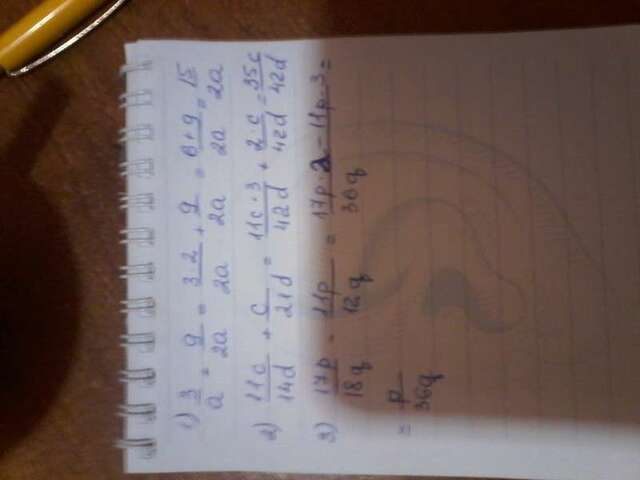 1) 3/a + 9/2a = 3·2/2a + 9/2a = 6+9/2a = 15/2a
2) 11c/14d + c/21d = 11c·3/42d + 2·c/42d = 35c/42d
3) 17p/18q - 11p/12q = 17p·2 - 11p·3/36q =
= p/36q